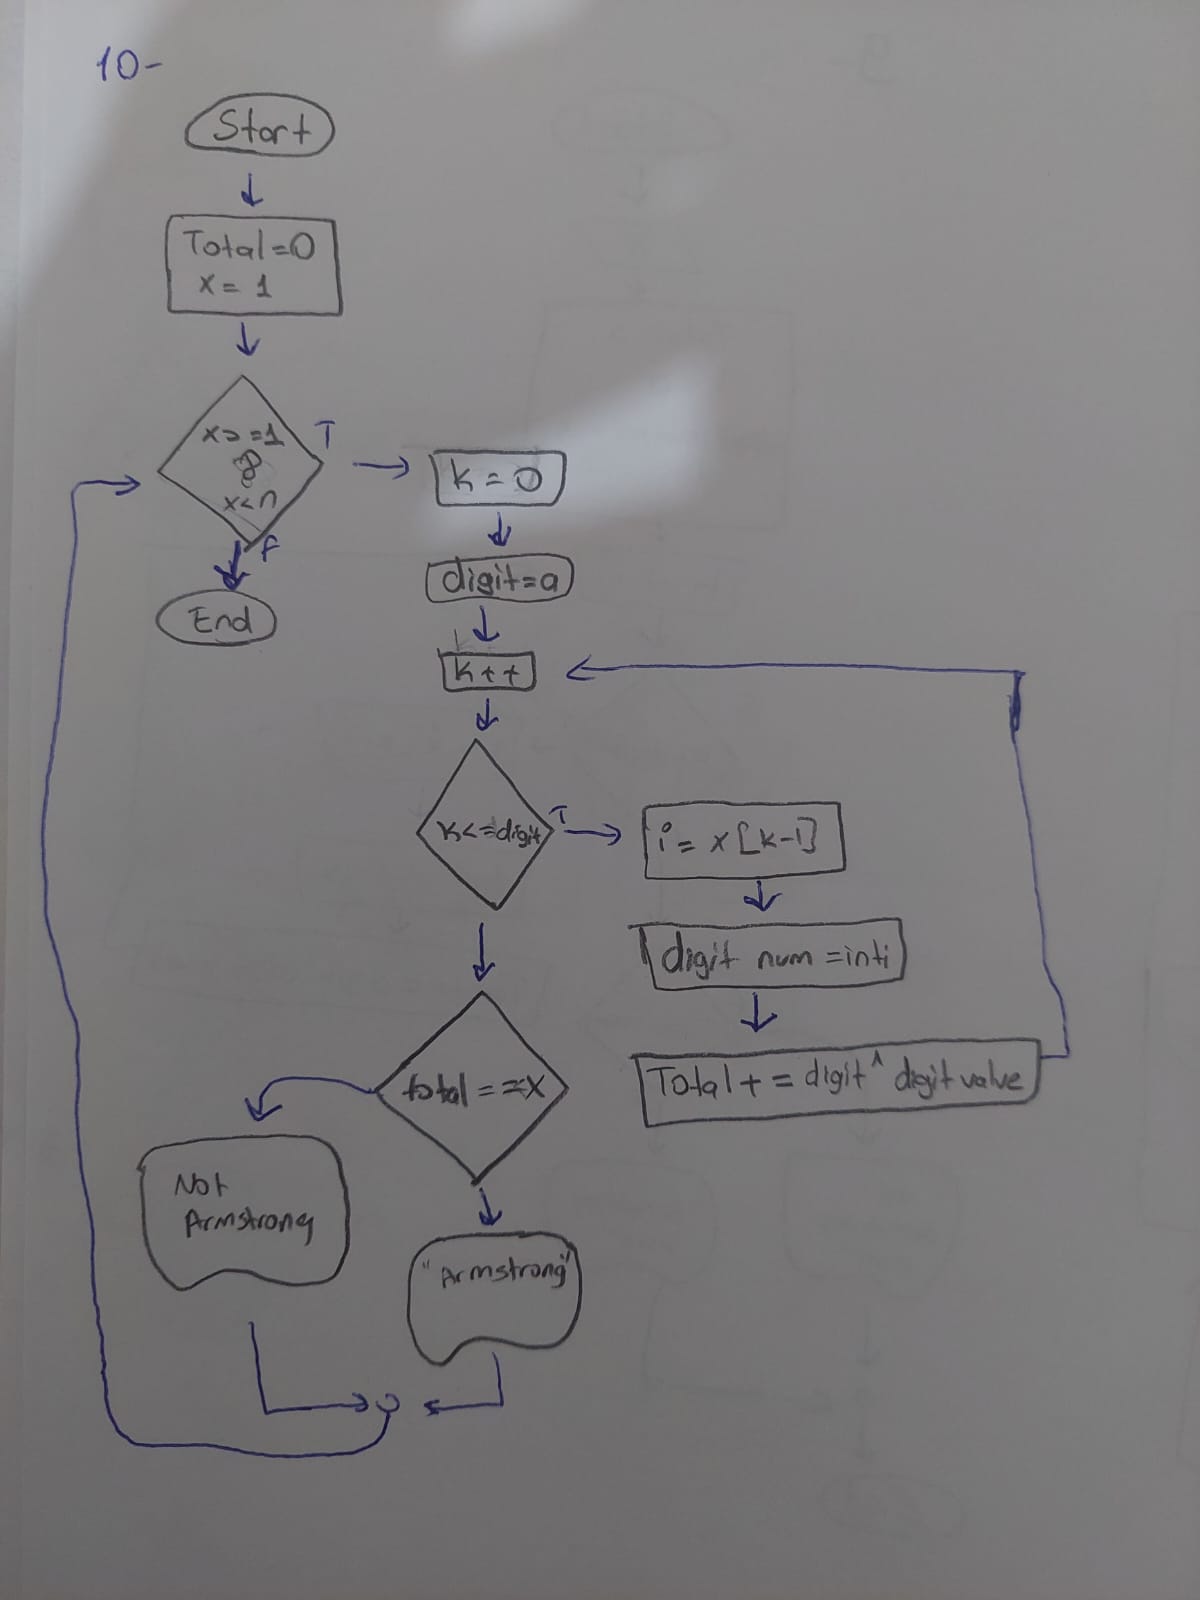 10-
Start
Total=0
x= 1
x>=1
&
x<n
T
F
End
k=0
digit=a
k++
k<=digit
T
i= x[k-1]
digit num =inti
Total+=digit^digitvalue
total==x
Not
Armstrong
"Armstrong"